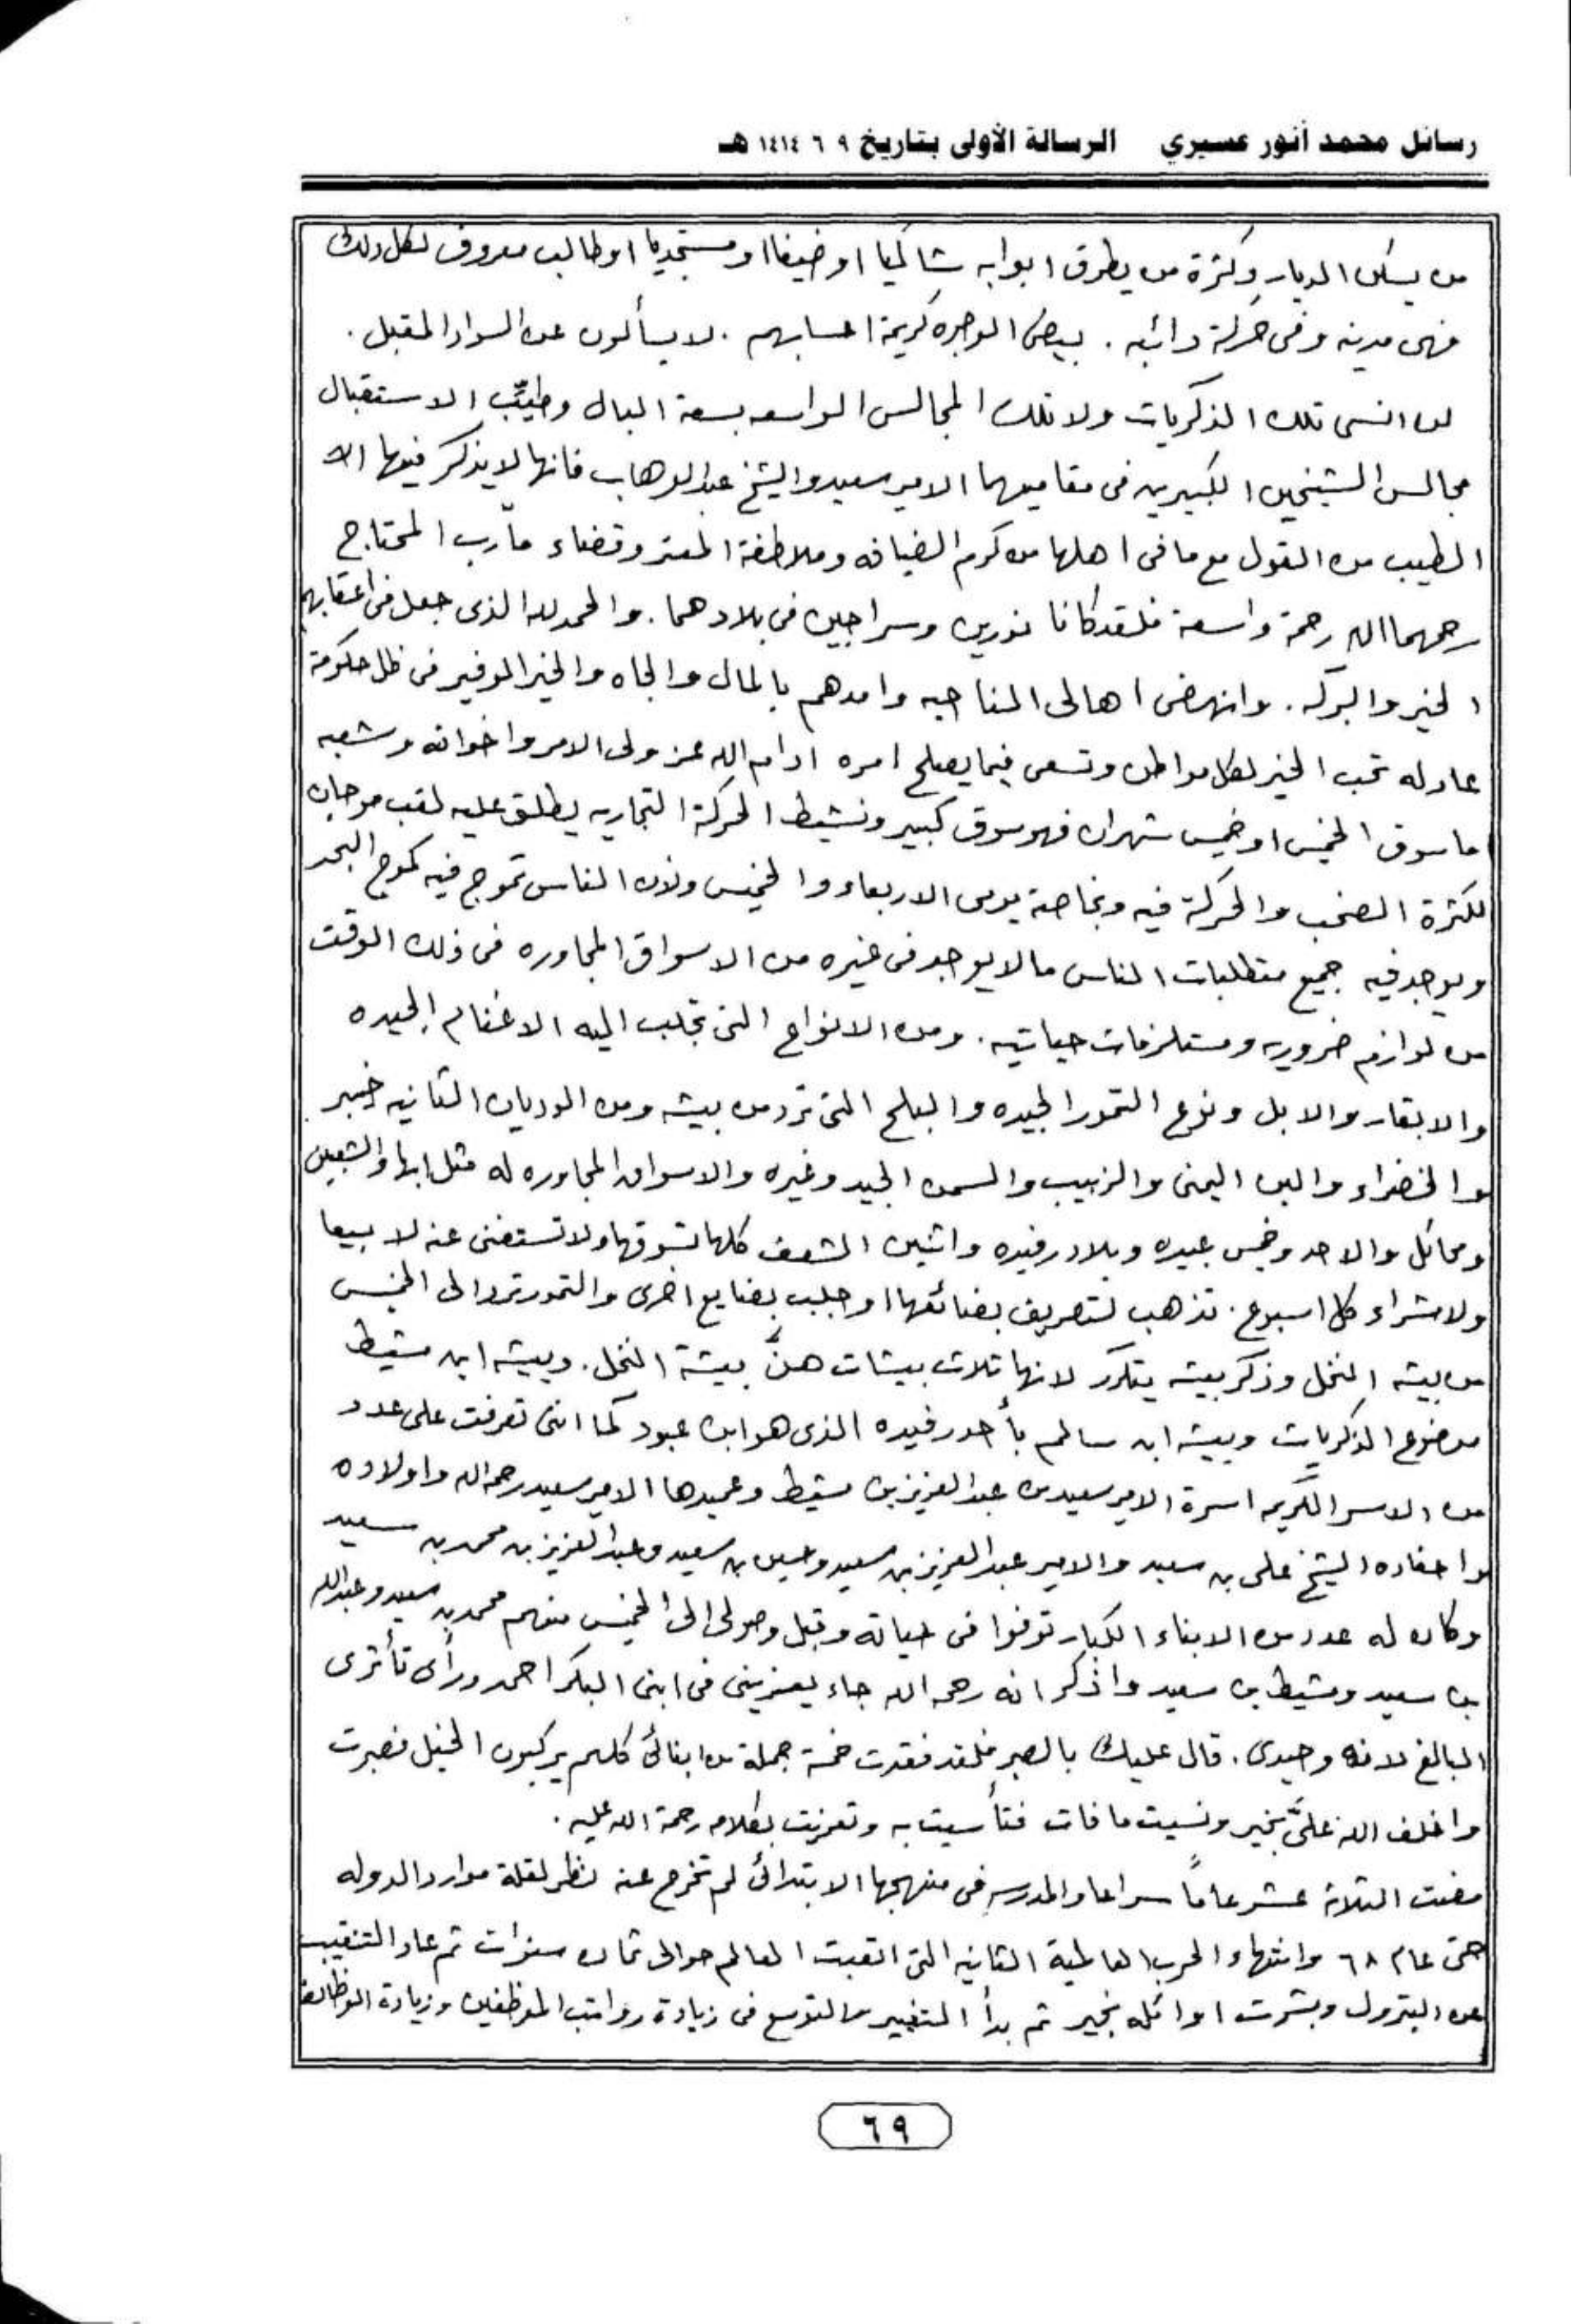 رسائل محمد أنور عسيري الرسالة الأولى بتاريخ ٩ ٦ ١٤١٤ هـ
من يسكن الديار وكثرة من يطرق ابوابه شاكيا اوضيفا او مستجديا او طالب معروف لكل ذلك
فهى مدينه وفى حركة دائبه . بيض الوجوه كريمة احسابهم . لا يسألون عن السواد المقبل .
لن انسى تلك الذكريات ولا تلك المجالس الواسعه بسعة البال وطيِّب الاستقبال
مجالس الشيخين الكبيرين فى مقاميهما الامير سعيد والشيخ عبدالوهاب فانها لا يذكر فيها الا
الطيب من القول مع ما فى اهلها من كرم الضيافه وملاطفة المعتر وقضاء مآرب المحتاج
رحمهما الله رحمة واسعة فلقد كانا نورين وسراجين فى بلادهما . والحمد لله الذى جعل فى اعقابهم
الخير والبركه . وانهض اهالى المناحيه وامدهم بالمال والجاه والخير الوفير فى ظل حكومة
عادله تحب الخير لكل مواطن وتسعى فيما يصلح امره ادام الله عز ولى الامر واخوانه وشعبه
اما سوق الخميس او خميس شهران فهو سوق كبير ونشيط الحركة التجاريه يطلق عليه لقب موجان
لكثرة الصخب والحركة فيه وبخاصة يومى الاربعاء والخميس ولان الناس تموج فيه كموج البحر
ويوجد فيه جميع متطلبات الناس ما لا يوجد فى غيره من الاسواق المجاوره فى ذلك الوقت
من لوازم ضروريه ومستلزمات حياتيه . ومن الانواع التى تجلب اليه الاغنام الجيده
والابقار والابل ونوع التمور الجيده والبلح التى ترد من بيشه ومن الوديان الثانيه خيبر
والخضراء والبن اليمنى والزبيب والسمن الجيد وغيره والاسواق المجاوره له مثل ابها والشعبين
ومحائل والاحد وخميس عبيده وبلاد رفيده واثنين الشعف كلها تسوقها ولا تستغنى عنه لا بيعا
ولا شراء كل اسبوع . تذهب لتصريف بضائعها او جلب بضايع اخرى والتمور ترد الى الخميس
من بيشه النخل وذكر بيشه يتكرر لانها ثلاث بيشات هنَّ بيشة النخل . وبيشه ابن مشيط
موضوع الذكريات وبيشه ابن سالم بأحد رفيده الذى هو ابن عبود كما اننى تعرفت على عدد
من الاسر الكريمه اسرة الامير سعيد بن عبدالعزيز بن مشيط وعميدها الامير سعيد رحمه الله واولاده
واحفاده الشيخ على بن سعيد والامير عبدالعزيز بن سعيد وحسين بن سعيد وعبدالعزيز بن محمد بن سعيد
وكان له عدد من الابناء الكبار توفوا فى حياته وقبل وصولى الى الخميس منهم محمد بن سعيد وعبدالله
بن سعيد ومشيط بن سعيد واذكر انه رحمه الله جاء يعزينى فى ابنى البكر احمد ورأى تأثرى
البالغ لانه وحيدى . قال عليك بالصبر فلقد فقدت خمسة جملة من ابنائى كلهم يركبون الخيل فصبرت
واخلف الله علىَّ بخير ونسيت ما فات فتأسيت به وتعزيت بكلامه رحمة الله عليه .
مضت الثلاثة عشر عاماً سراعا والمدرسه فى منهجها الابتدائى لم تخرج عنه نظر لقلة موارد الدوله
حتى عام ٦٨ وانتهاء الحرب العالمية الثانيه التى اتعبت العالم حوالى ثمان سنوات ثم عاد التنقيب
عن البترول وبشرت اوائله بخير ثم بدأ التغيير والتوسع فى زيادة رواتب الموظفين وزيادة الوظائف
٦٩